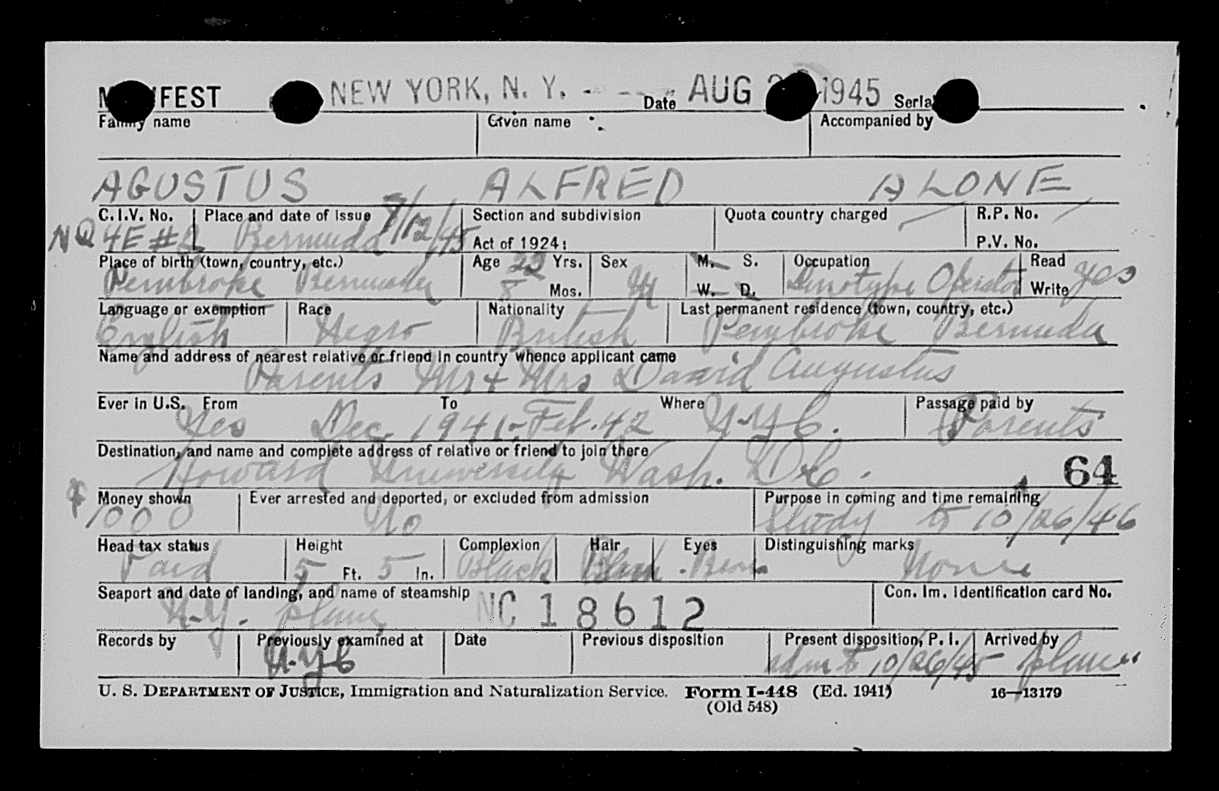 NEW YORK, N. Y. Date AUG 1945
Family name Given name Accompanied by
AGUSTUS ALFRED ALONE
C.I.V. No. Place and date of issue Section and subdivision Quota country charged R.P. No.
NQ 4E # Bermuda 7/12/45 Act of 1924: P.V. No.
Place of birth (town, country, etc.) Age 23 Yrs. Sex M. S. Occupation Read
Pembroke Bermuda 8 Mos. M W. D. Linotype Operator Write yes
Language or exemption Race Nationality Last permanent residence (town, country, etc.)
English Negro British Pembroke Bermuda
Name and address of nearest relative or friend in country whence applicant came
Parents Mr & Mrs David Augustus
Ever in U.S. From To Where Passage paid by
Yes Dec 1941-Feb. 42 N.Y.C. Parents
Destination, and name and complete address of relative or friend to join there
Howard University Wash. D.C. 64
Money shown Ever arrested and deported, or excluded from admission Purpose in coming and time remaining
$1000 No Study to 10/26/46
Head tax status Height Complexion Hair Eyes Distinguishing marks
Paid 5 Ft. 5 In. Black Black None
Seaport and date of landing, and name of steamship Con. Im. Identification card No.
N.Y. plane NC 18612
Records by Previously examined at Date Previous disposition Present disposition, P. I. Arrived by
N.Y.C adm to 10/26/45 plane
U. S. DEPARTMENT OF JUSTICE, Immigration and Naturalization Service. Form I-448 (Ed. 1941) 16—13179
(Old 548)